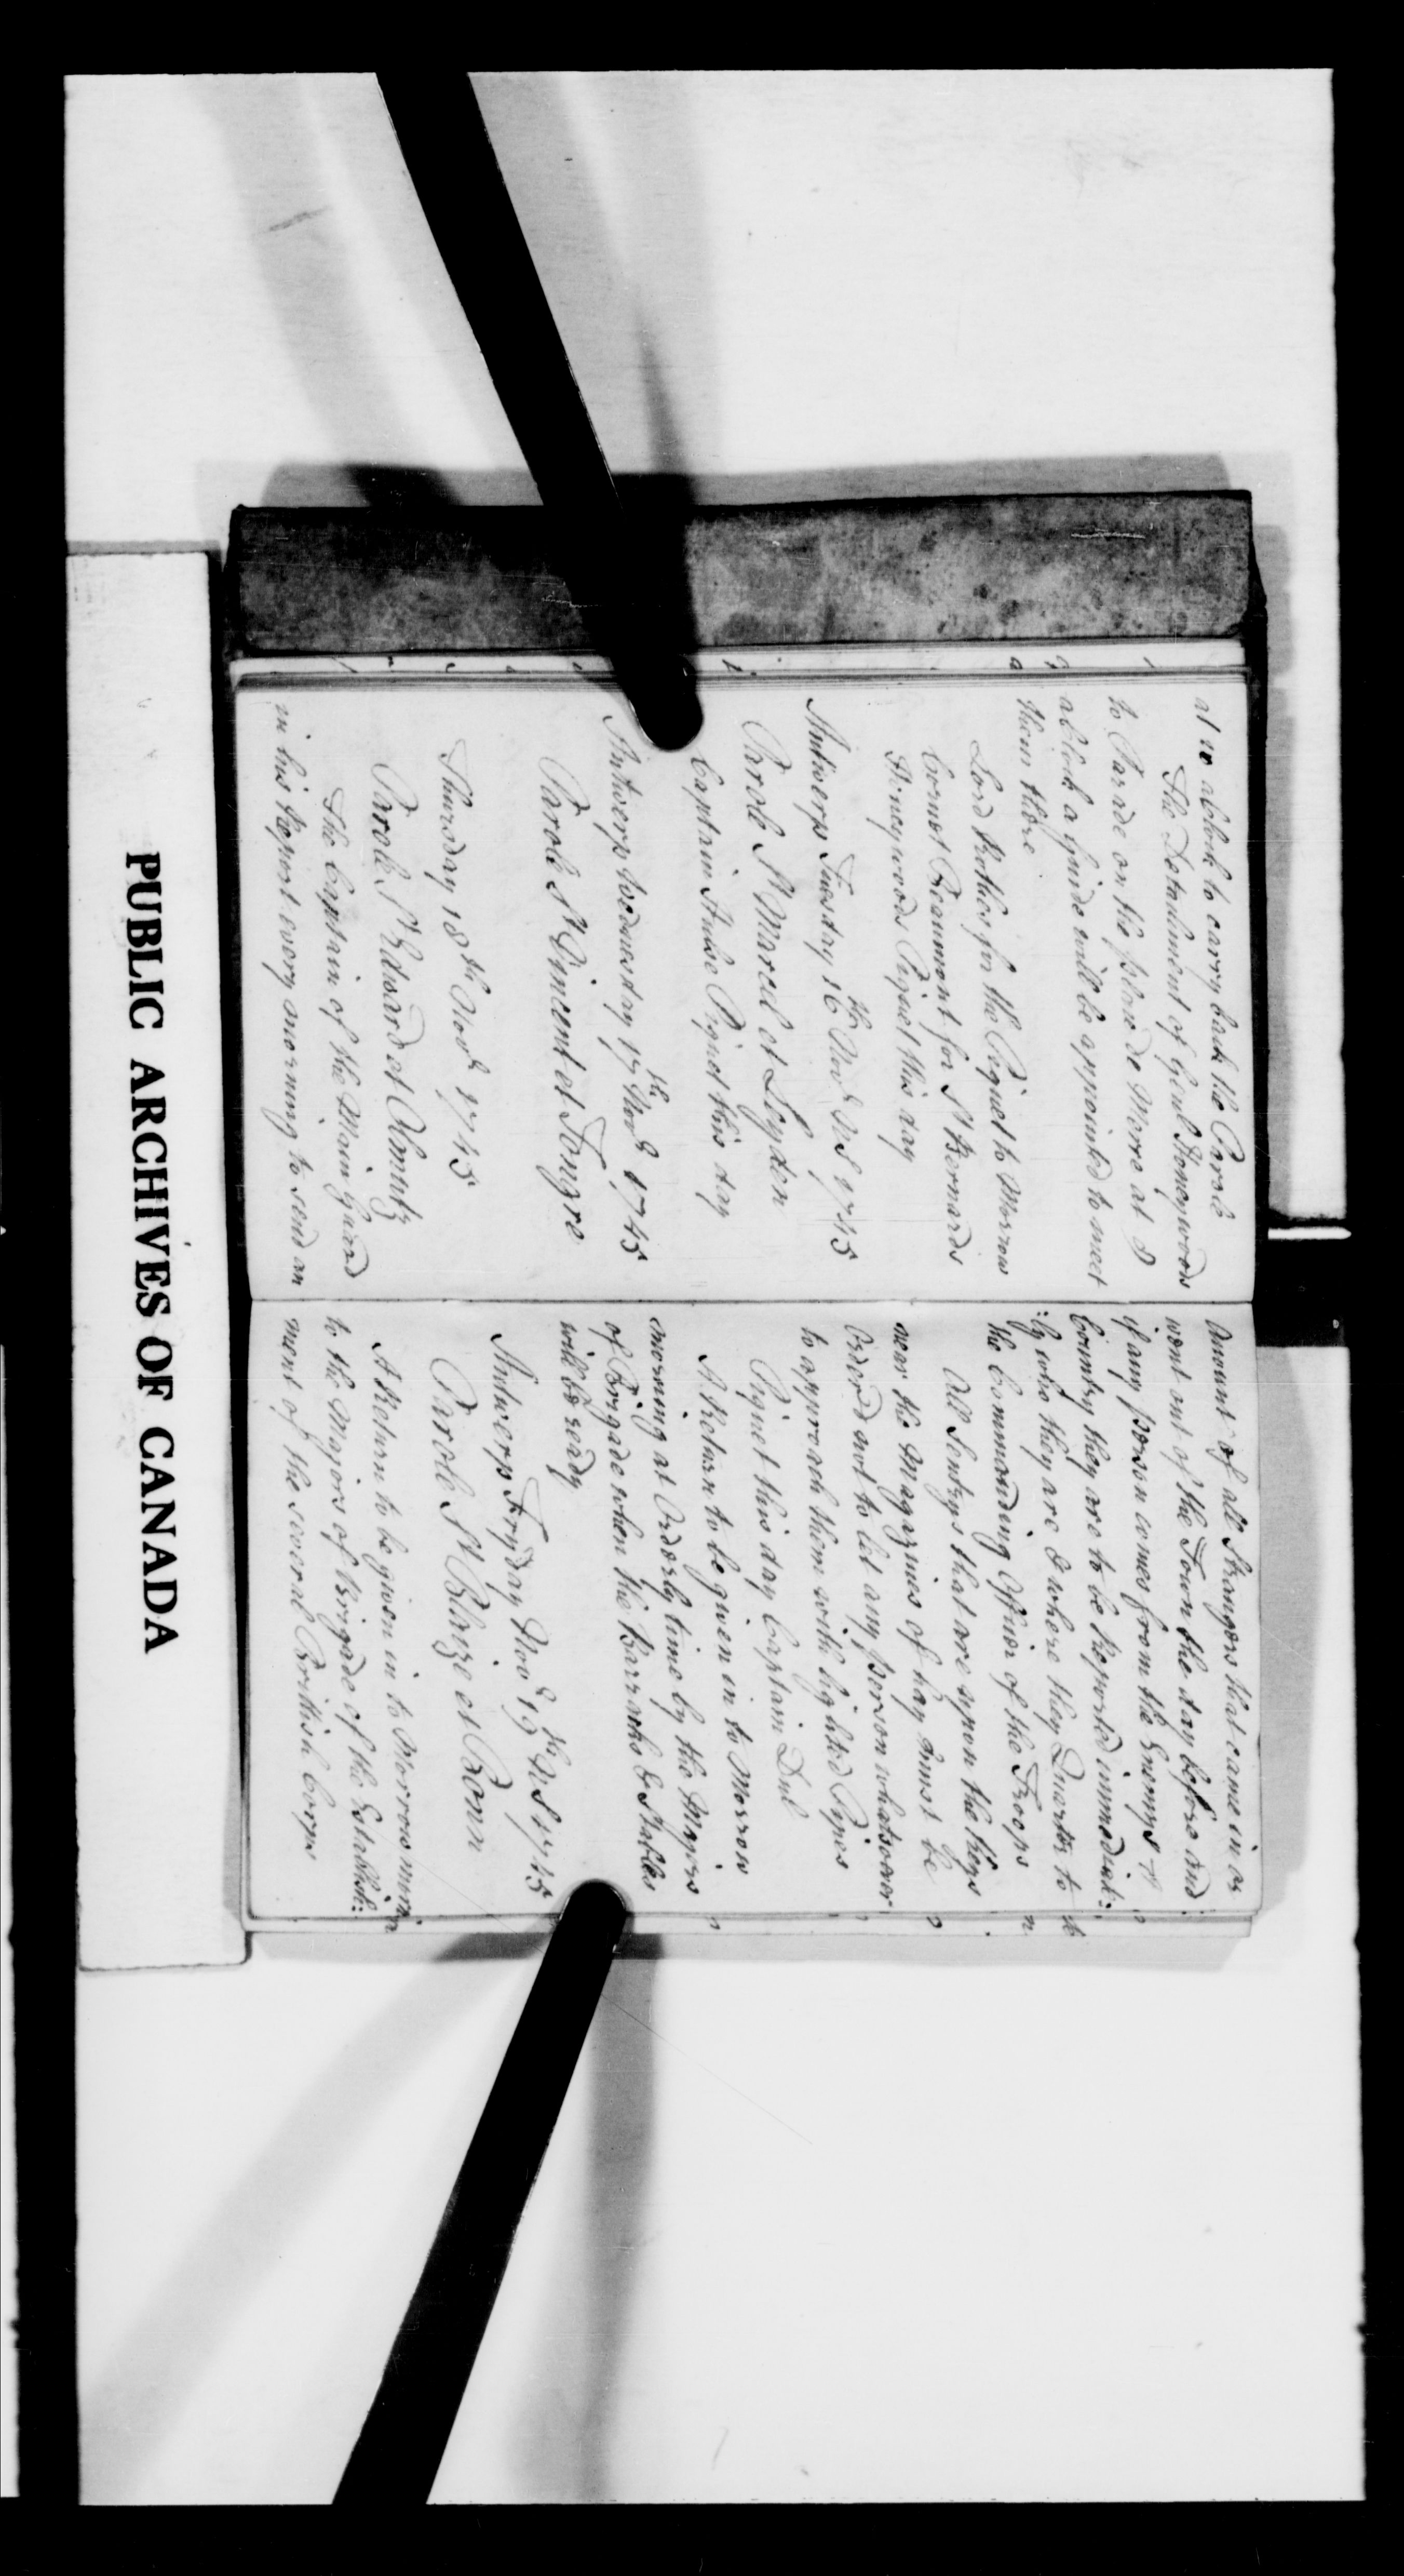 at 10 aClock to carry back the Parole
The Detachment of Genl Honeywoods
to Parade on the place de Merre at 8
aClock a guide will be appointed to meet
them there
Lord Rothes for the Piquet to Morrow
Cornet Beaumont for St Bernards
Honeywoods Piquet this day
Antwerp Tuesday 16th Novr NS 1745
Parole St Marcel et Leyden
Captain Hulse Piquet this day
Antwerp Wednesday 17th Novr 1745
Parole St Vincent et Tongre
Thursday 18th Novr 1745
Parole St Edward et Olmutz
The Captain of the Main Guard
in his Report every morning to send an
Amount of all Strangers that came in or
went out of the Town the day before and
if any person comes from the Enemys
Country they are to be Reported immediat:
:ly who they are & where they Quarter to
the Commanding Officer of the Troops
All Sentrys that are upon the Keys
near the Magazines of hay must be
Orderd not to let any person whatsoever
to approach them with lighted Pipes
Piquet this day Captain
A Return to be given in to Morrow
morning at Orderly time by the Majors
of Brigade when the Barracks & Stables
will be ready
Antwerp Fryday Novr 19th NS 1745
Parole St Blaize et Bonn
A Return to be given in to Morrow morning
to the Majors of Brigade of the Establish:
ment of the several Brittish Corps
PUBLIC ARCHIVES OF CANADA